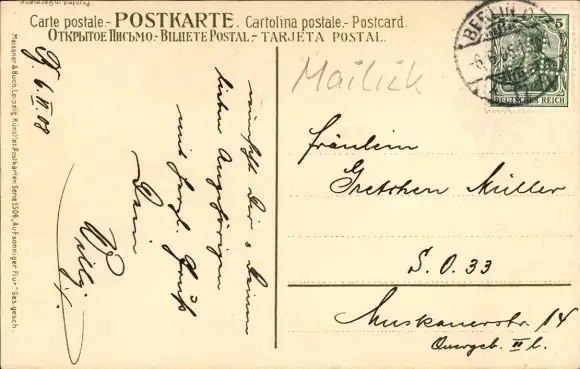 Printed in Germany
Carte postale.- POSTKARTE. Cartolina postale.- Postcard.
ОТКРЫТОЕ ПИСЬМО.- BILHETE POSTAL.- TARJETA POSTAL.
Meissner & Buch, Leipzig. Künstler-Postkarten Serie 1506, „Auf sonniger Flur“ Ges. gesch.
6. II 08
wünscht Dir u. Deinen
lieben Angehörigen
mit herzl. Gruß
Dein
Willy
BERLIN
5
DEUTSCHES REICH
Mailick
Fräulein
Gretchen Müller
S. O. 33
Muskauerstr. 14
Quergeb. II l.